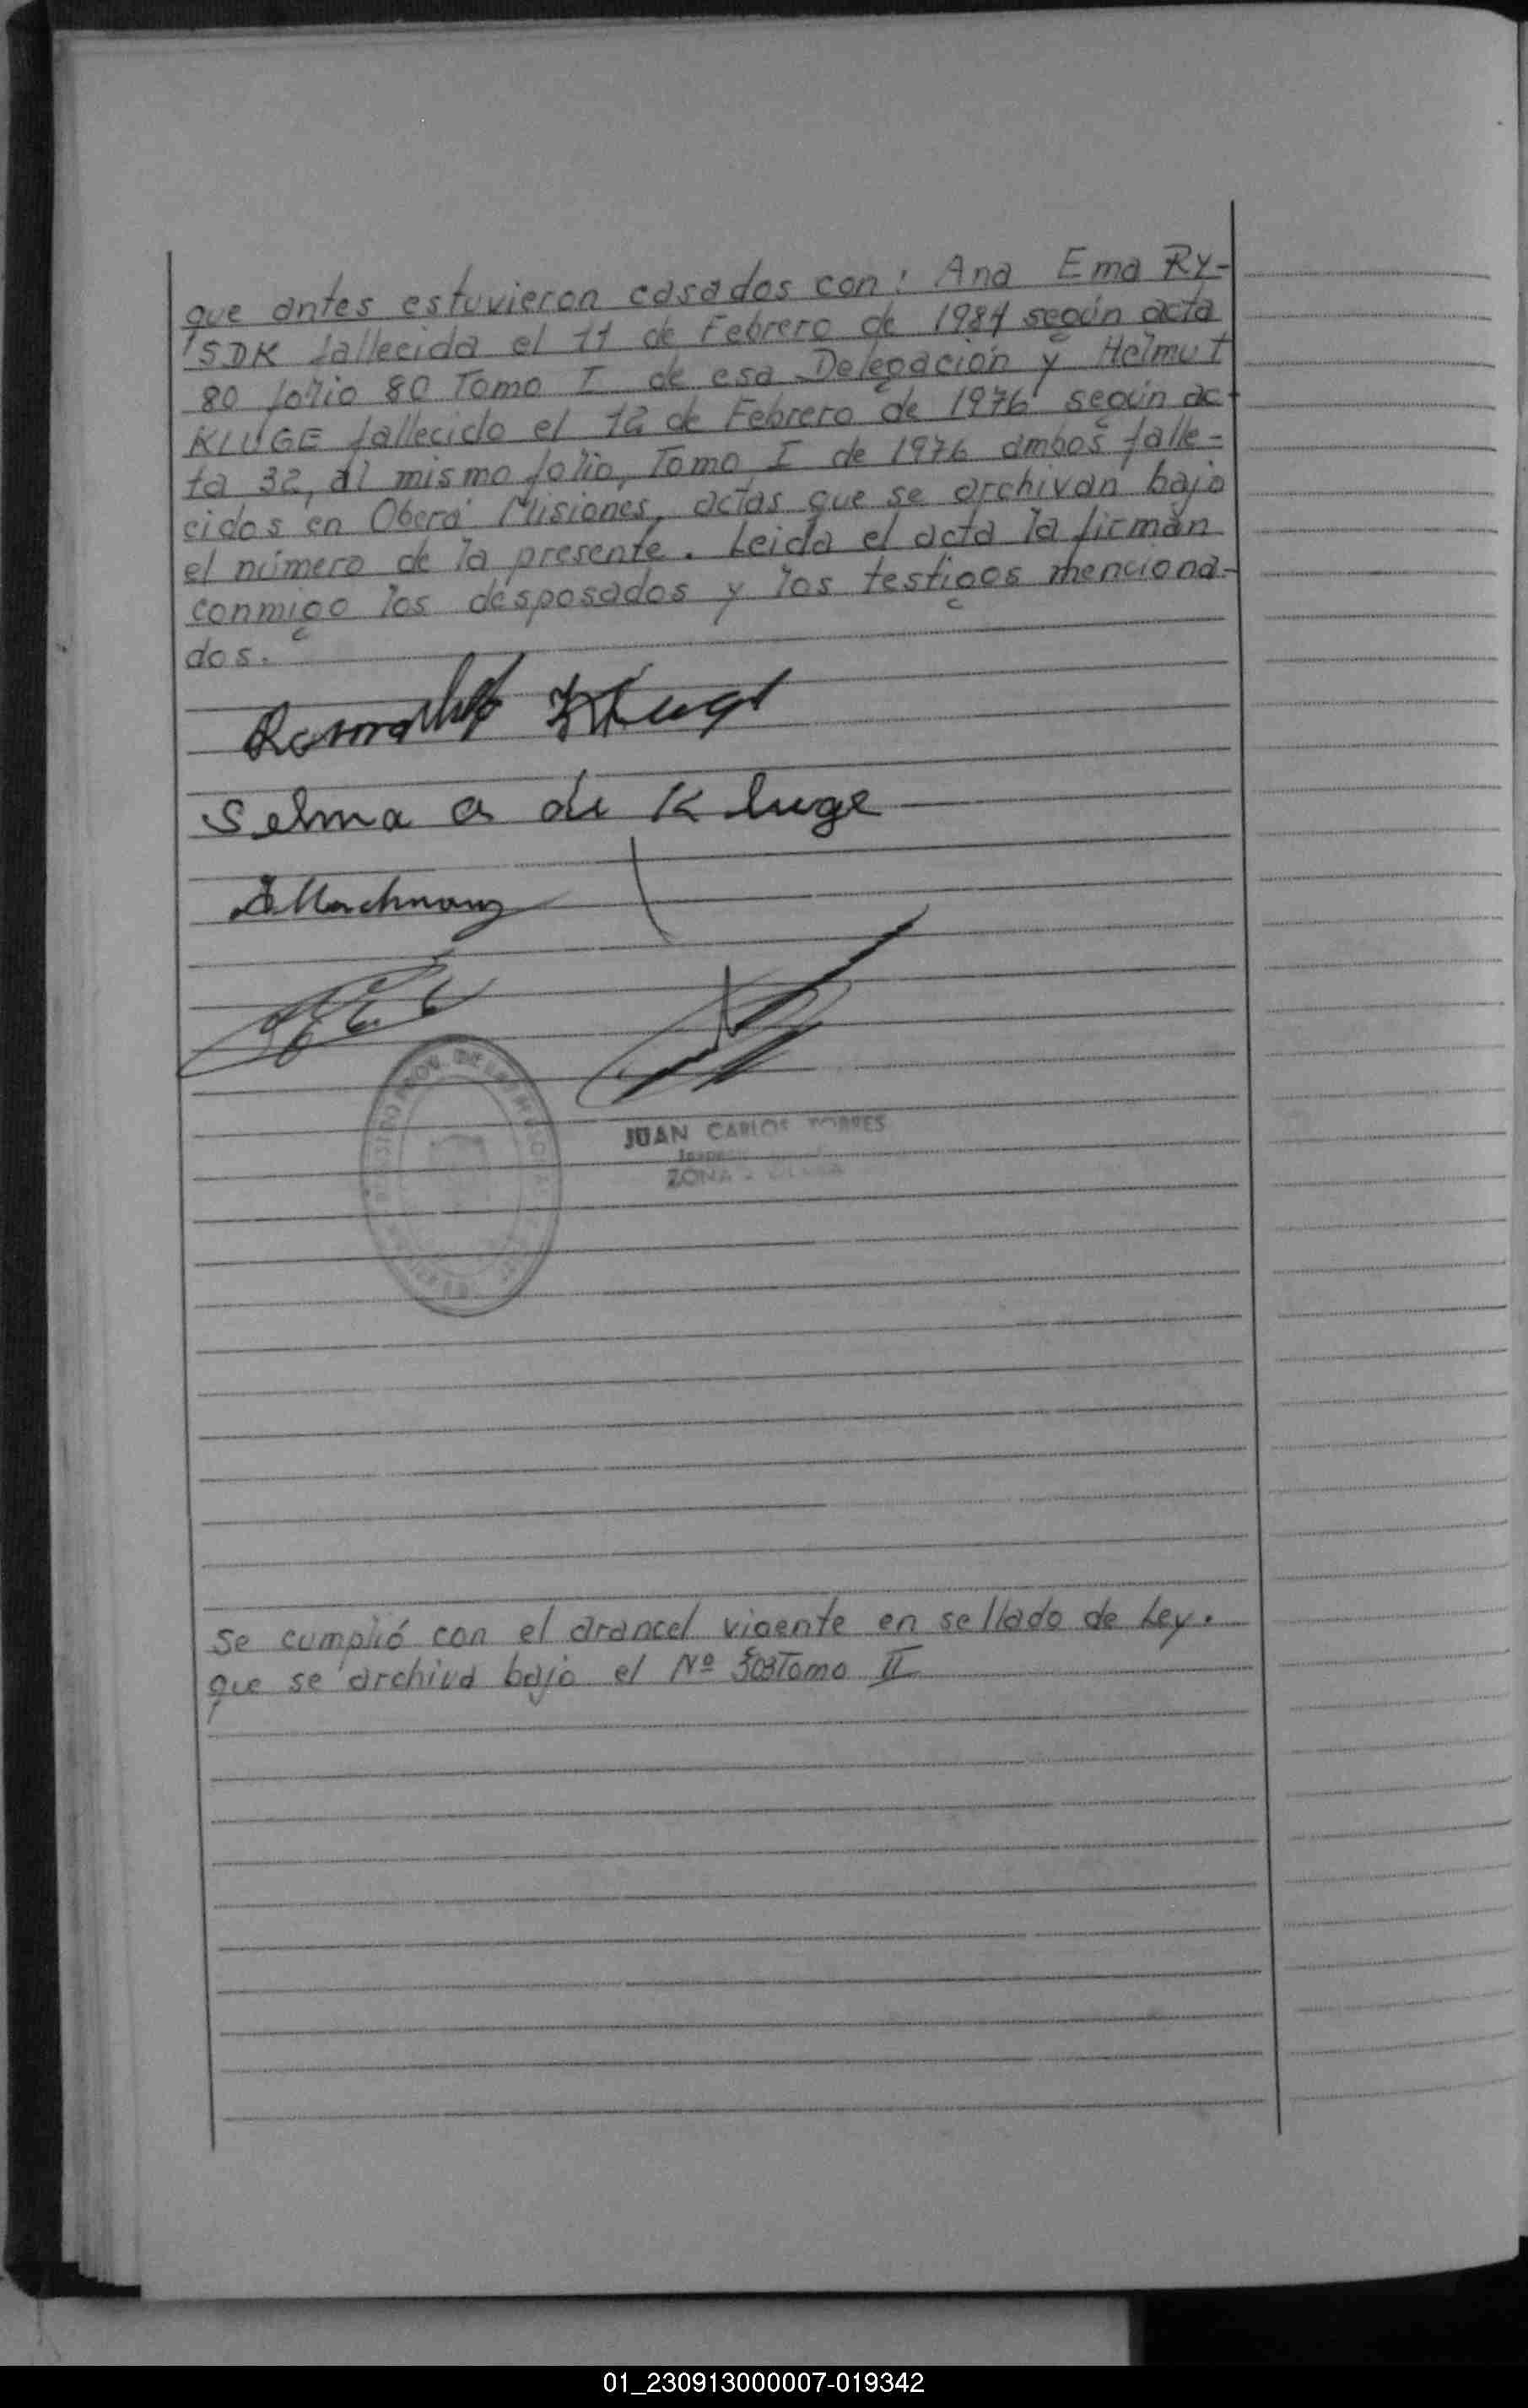 que antes estuvieron casados con: Ana Ema RY-
SDK fallecida el 11 de Febrero de 1984 según acta
80 folio 80 Tomo I de esa Delegación y Helmut
KLUGE fallecido el 12 de Febrero de 1976 según ac-
ta 32, al mismo folio, Tomo I de 1976 ambos falle-
cidos en Oberá Misiones, actas que se archivan bajo
el número de la presente. Leida el acta la firman
conmigo los desposados y los testigos menciona-
dos.
Kluge
Selma a de Kluge
JUAN CARLOS TORRES
ZONA
Se cumplió con el arancel vigente en sellado de Ley.
que se archiva bajo el Nº Tomo II
01_230913000007-019342